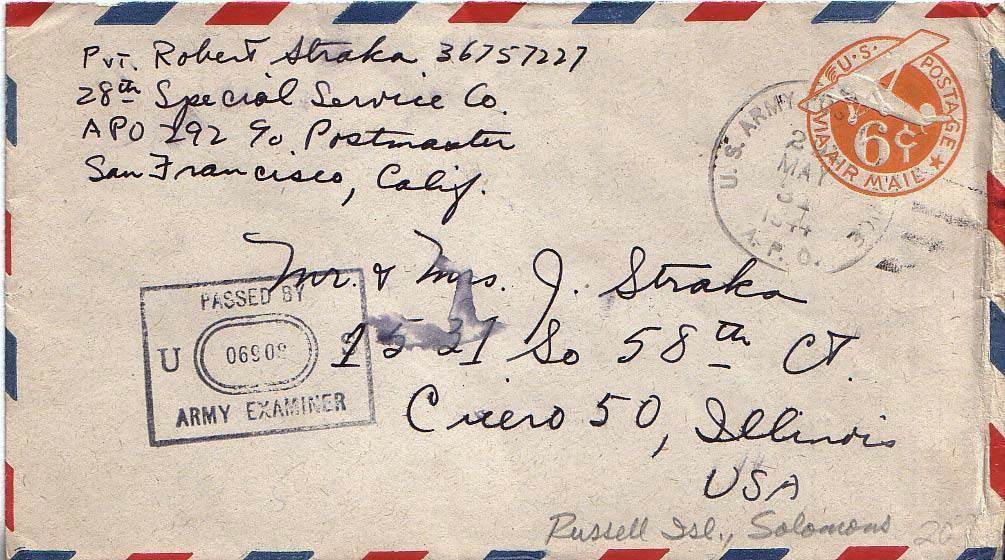 Pvt. Robert Straka 36757227
28th Special Service Co.
APO 292 c/o Postmaster
San Francisco, Calif.
U.S. POSTAGE
6¢
VIA AIR MAIL
U.S. ARMY
2
MAY
31
1944
A.P.O.
Mr. & Mrs. J. Straka
1531 So 58th Ct.
Cicero 50, Illinois
USA
PASSED BY
U 06908 S
ARMY EXAMINER
Russell Isl., Solomons